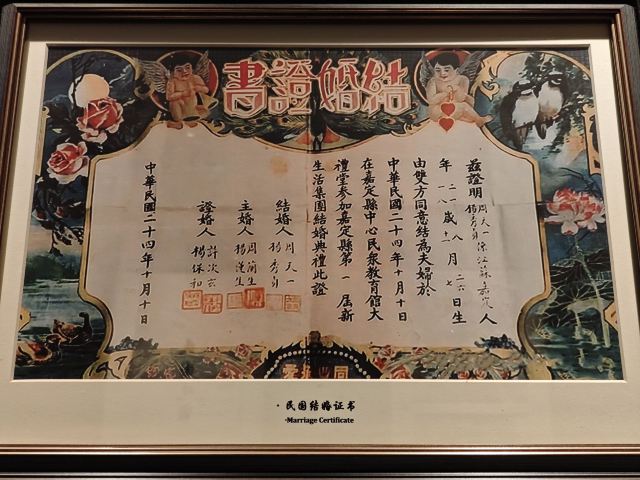 結婚證書
茲證明周天一楊秀貞係江蘇嘉定人
年二一一八歲八十一月二六七日生
由雙方同意結為夫婦於
中華民國二十四年十月十日
在嘉定縣中心民眾教育館大
禮堂參加嘉定縣第一屆新
生活集團結婚典禮此證
結婚人 周天一 楊秀貞
主婚人 周蘭生 楊生
證婚人 許次玄 楊保和
中華民國二十四年十月十日
·民国结婚证书
·Marriage Certificate